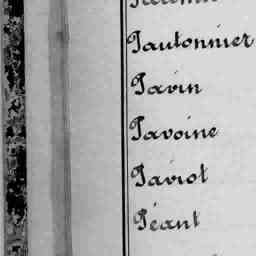 Pautonnier
Pavin
Pavoine
Paviot
Péant